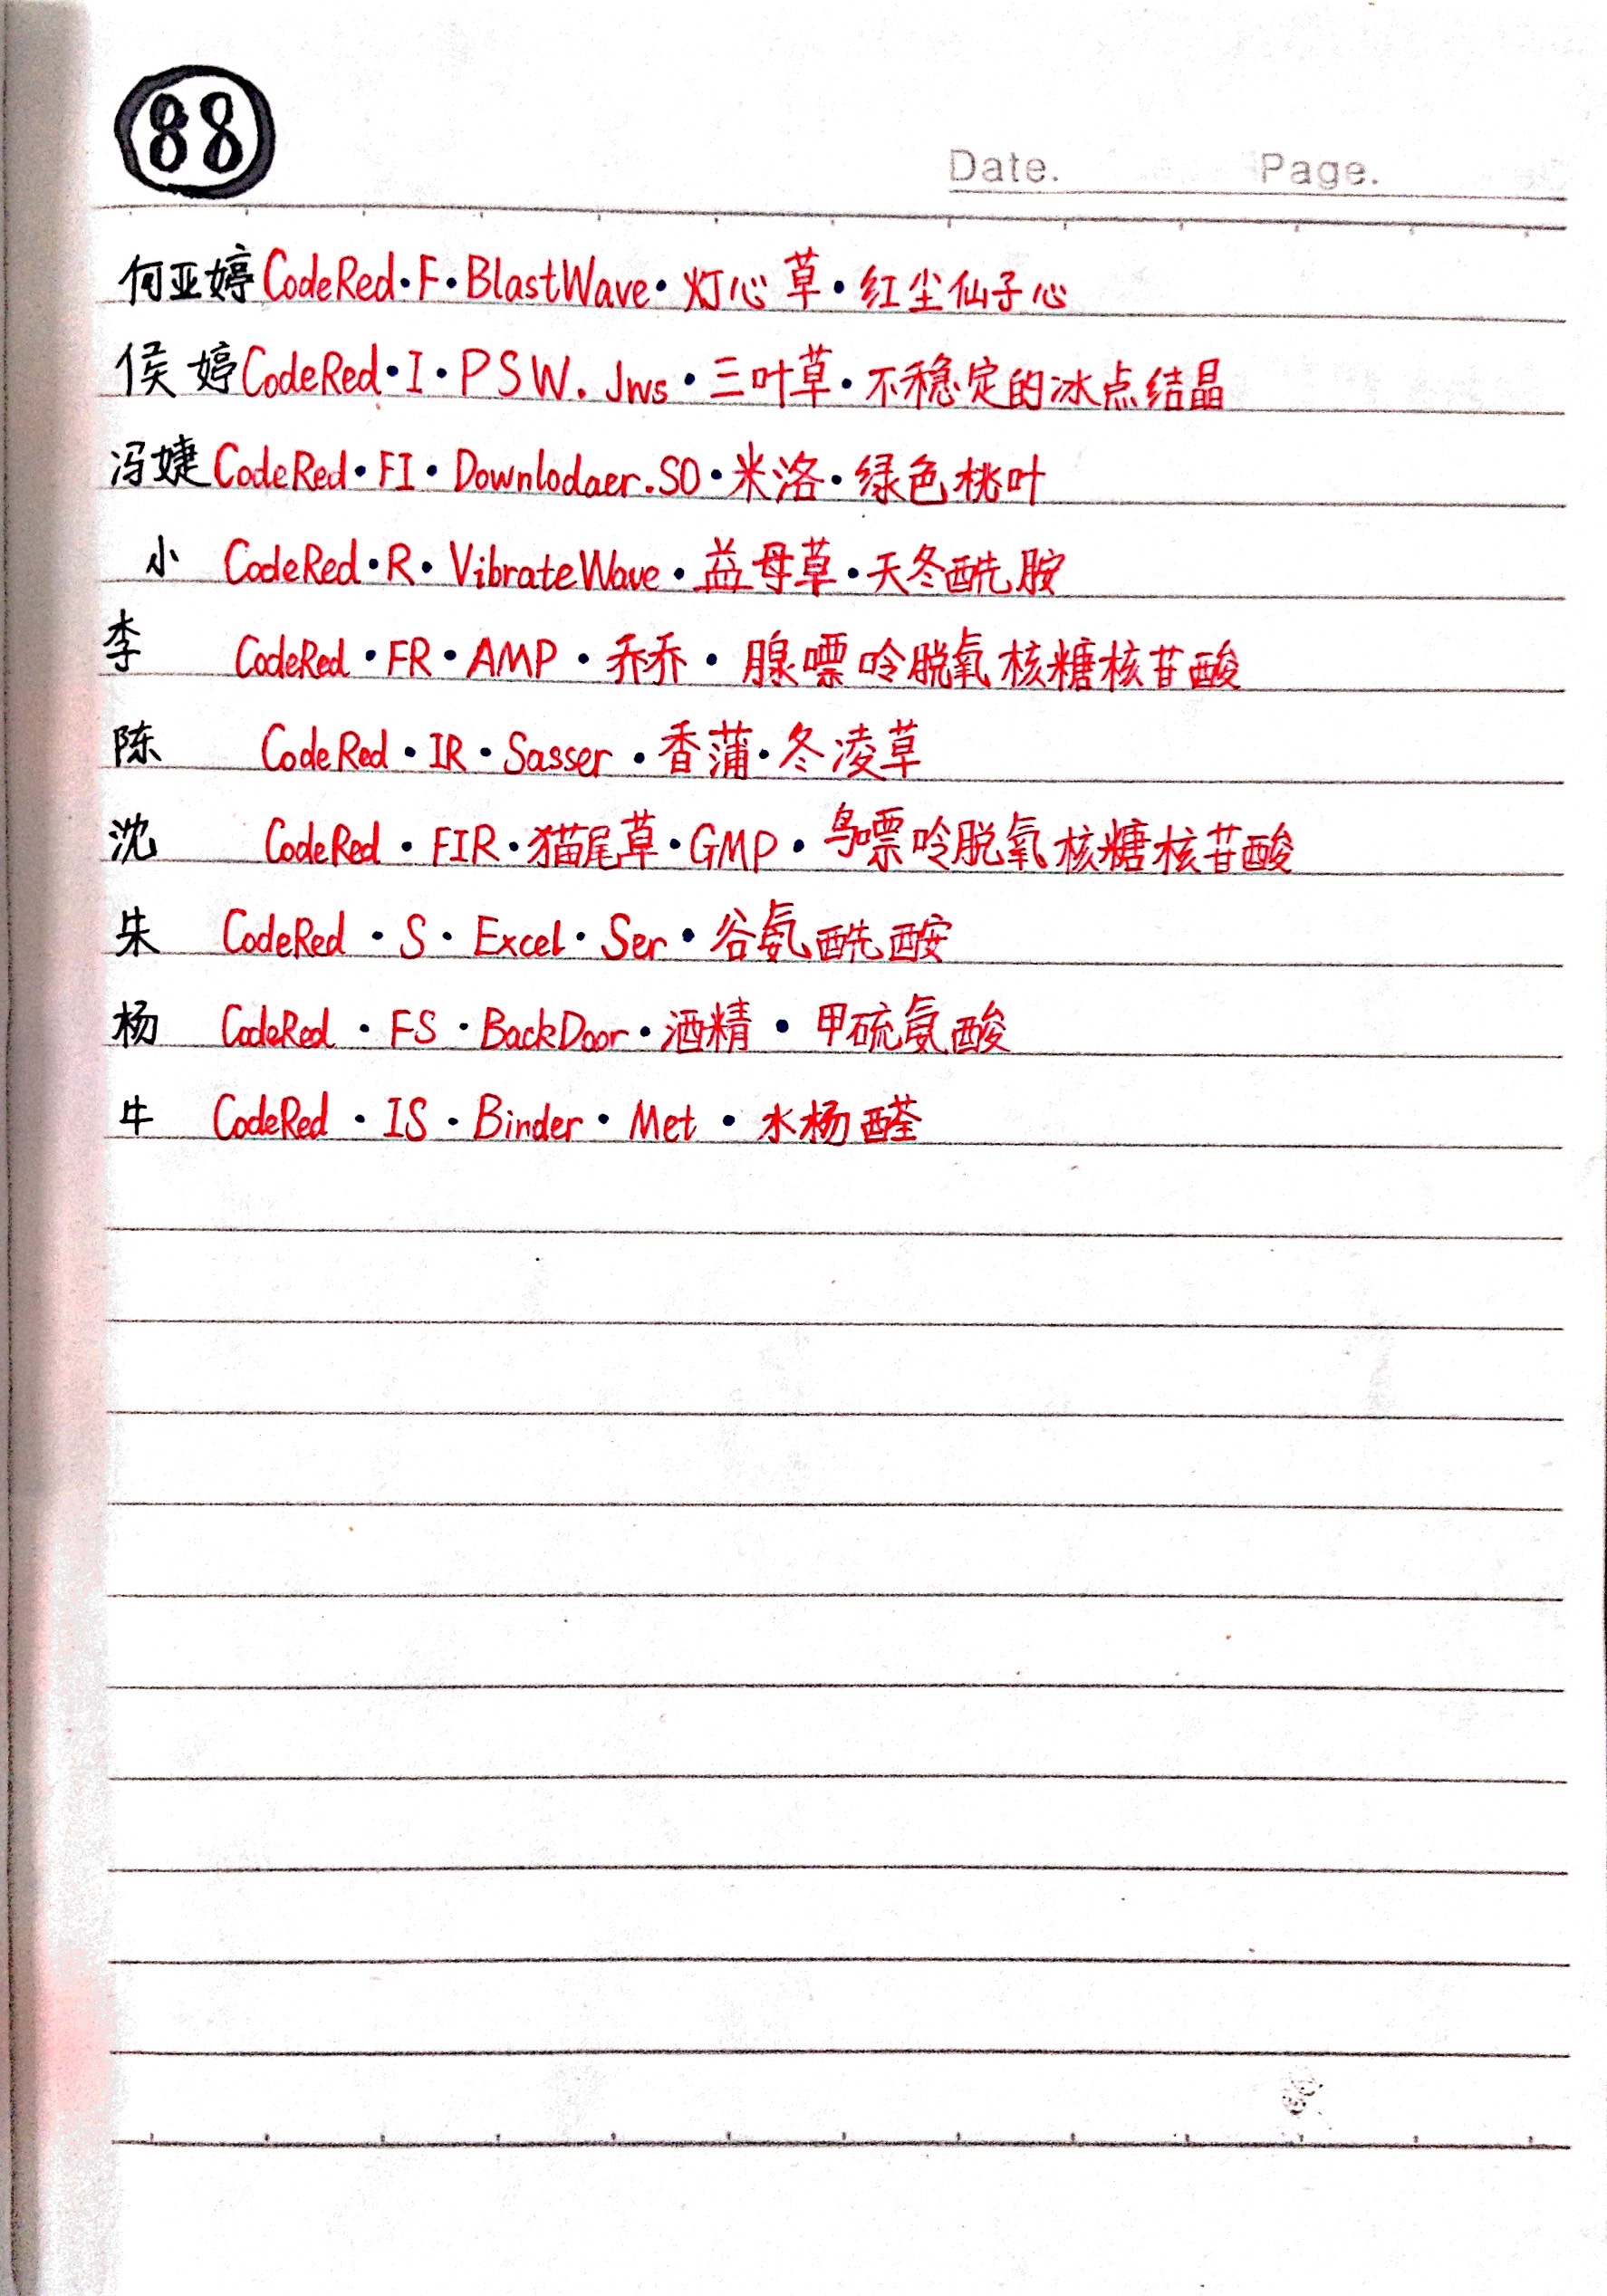 88
Date. Page.
何亚婷CodeRed·F·BlastWave·灯心草·红尘仙子心
侯婷CodeRed·I·PSW.Jws·三叶草·不稳定的冰点结晶
冯婕CodeRed·FI·Downlodaer.SO·米洛·绿色桃叶
小 CodeRed·R·VibrateWave·益母草·天冬酰胺
李 CodeRed·FR·AMP·乔乔·腺嘌呤脱氧核糖核苷酸
陈 CodeRed·IR·Sasser·香蒲·冬凌草
沈 CodeRed·FIR·猫尾草·GMP·鸟嘌呤脱氧核糖核苷酸
朱 CodeRed·S·Excel·Ser·谷氨酰
杨 CodeRed·FS·BackDoor·酒精·甲硫氨酸
牛 CodeRed·IS·Binder·Met·水杨